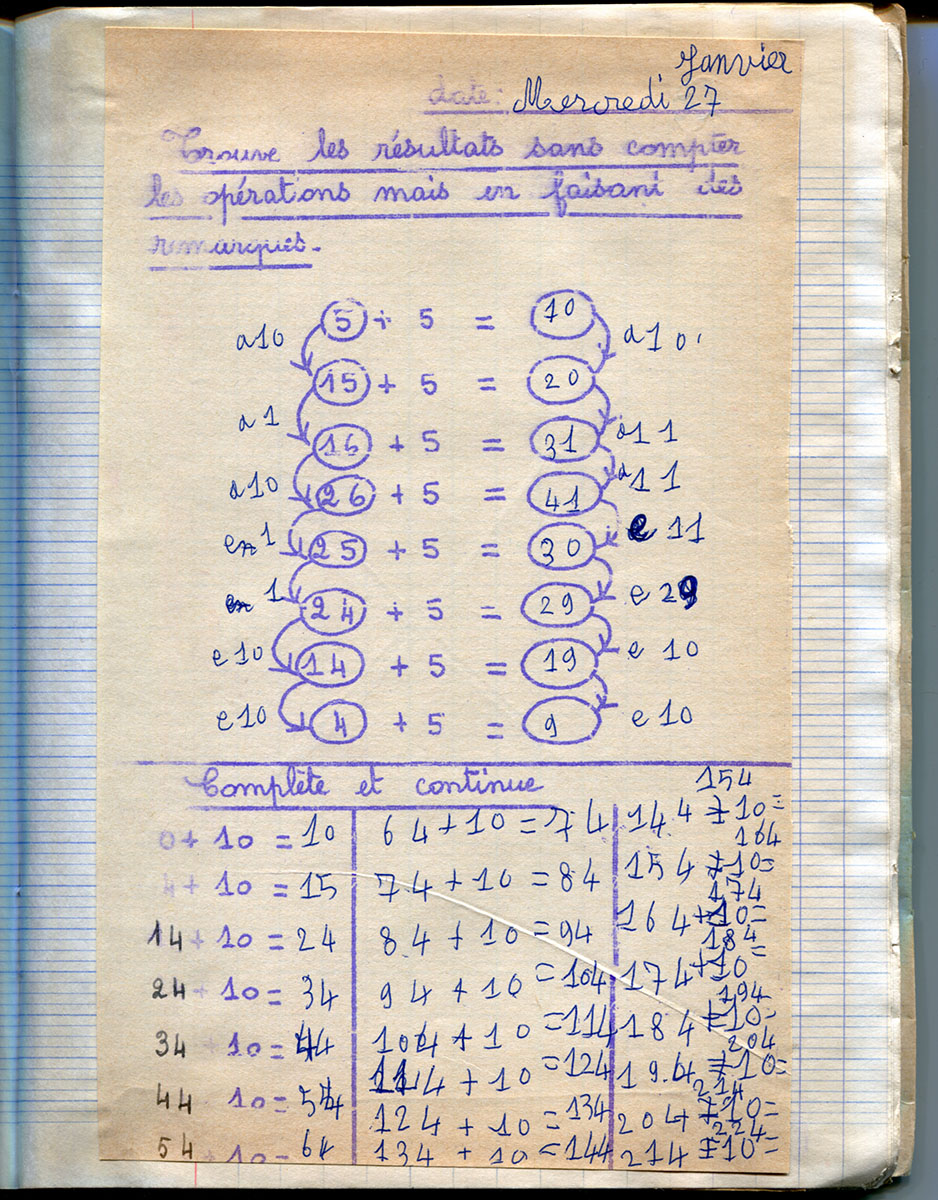 Janvier
date: Mercredi 27
Trouve les résultats sans compter
les opérations mais en faisant des
remarques.
5 + 5 = 10
a10 a10
15 + 5 = 20
a1 a11
16 + 5 = 31
a10 a11
26 + 5 = 41
en 1 e 11
25 + 5 = 30
en 1 e 29
24 + 5 = 29
e10 e 10
14 + 5 = 19
e10 e10
4 + 5 = 9
Complète et continue
0 + 10 = 10
4 + 10 = 15
14 + 10 = 24
24 + 10 = 34
34 + 10 = 44
44 10 = 54
54 + 10 = 64
64 + 10 = 74
74 + 10 = 84
84 + 10 = 94
94 + 10 = 104
104 + 10 = 114
114 + 10 = 124
124 + 10 = 134
134 + 10 = 144
144 + 10 = 154
154 + 10 = 164
164 + 10 = 174
174 + 10 = 184
184 + 10 = 194
194 + 10 = 204
204 + 10 = 214
214 + 10 = 224